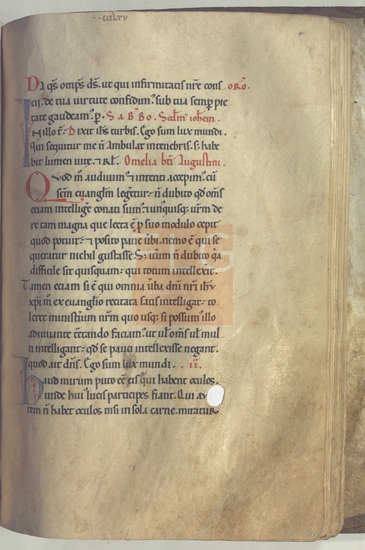 ccclxv
Da qs omps ds. ut qui infirmitatis nre cons oro.
cii. de tua virtute confidim. sub tua semp pie
tate gaudeam. p. SABBO. Scdm iohem.
In illo t. Dixit ihs turbis. Ego sum lux mundi.
Qui sequitur me n ambulat in tenebris. s; habe
bit lumen vite. et rl. Omelia bti Augustini.
Quod m audivim et intenti accepim. cu
scm euanglm legeret. n dubito qd oms
etiam intellige conati sum. et unusquisq; urm de
re tam magna que lecta e. p suo modulo cepit
quod potuit. et posito pane ubi. nemo e qui se
queratur nichil gustasse. S; itum n dubito qa
difficile sit quisquam. qui totum intellexit.
Tamen etiam si e qui omnia uba dni nri ihu
xpi m ex euanglio recitata satis intelligat. to
leret ministium nrm quo usq; si possum illo
adiuuante tractando faciam. ut ul oms ul mul
ti intelligant. qd se pauci intellexisse negant.
quod ait dns. Ego sum lux mundi. . ii.
Haud mirum puto ee eis qui habent oculos.
unde hui lucis participes fiant. Qui au
tem n habet oculos nisi in sola carne. miratur